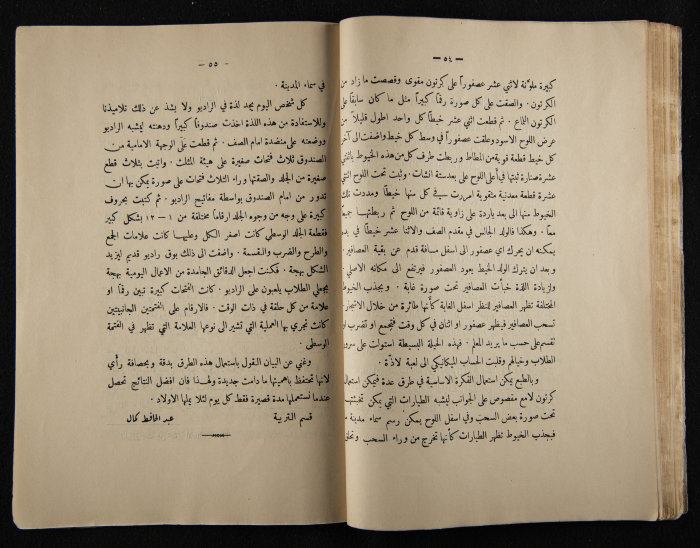 — ٥٤ —
كبيرة ملونة لاثني عشر عصفوراً على كرتون مقوى وقصصت ما زاد من
الكرتون . والصقت على كل صورة رقماً كبيراً مثل ما كان سابقاً على
الكرتون اللماع . ثم قطعت اثني عشر خيطاً كل واحد اطول قليلاً من
عرض اللوح الاسود وعلقت عصفوراً في وسط كل خيط واضفت الى آخر
كل خيط قطعة قوية من المطاط وربطت طرف كل من هذه الخيوط باثني
عشرة صنارة ثبتها في أعلى اللوح على بعد ستة انشات . وثبت تحت اللوح اثني
عشرة قطعة معدنية مثقوبة امررت في كل منها خيطاً ومددت تلك
الخيوط منها الى بعد ياردة على زاوية قائمة من اللوح ثم ربطتها جميعاً
معاً . وهكذا فالولد الجالس في مقدم الصف والاثنا عشر خيطاً في يده
يمكنه ان يحرك اي عصفور الى اسفل مسافة قدم عن بقية العصافير .
وبعد ان يترك الولد الخيط يعود العصفور فيرتفع الى مكانه الاصلي .
ولزيادة اللذة خبأت العصافير تحت صورة غابة . وبجذب الخيوط
المختلفة تظهر العصافير للنظر اسفل الغابة كأنها طائرة من خلال الاشجار
تسحب العصافير فيظهر عصفور او اثنان في كل وقت فتجمع او تضرب او
تقسم على حسب ما يريد المعلم . فهذه الحيلة البسيطة استولت على سرور
الطلاب وخيالهم وقلبت الحساب الميكانيكي الى لعبة لاذّة .
وبالطبع يمكن استعمال الفكرة الاساسية في طرق عدة فيمكن استعمال
كرتون لامع مفصوص على الجوانب ليشبه الطيارات التي يمكن تخبئتها
تحت صورة بعض السحب وفي اسفل اللوح يمكن رسم سماء مدينة .
فبجذب الخيوط تظهر الطيارات كأنها تخرج من وراء السحب وتحلق
— ٥٥ —
في سماء المدينة .
كل شخص اليوم يجد لذة في الراديو ولا يشذ عن ذلك تلاميذنا
وللاستفادة من هذه اللذة اخذت صندوقاً كبيراً ودهنته ليشبه الراديو
ووضعته على منضدة امام الصف . ثم قطعت على الوجهة الامامية من
الصندوق ثلاث فتحات صغيرة على هيئة المثلث . واتيت بثلاث قطع
صغيرة من الجلد والصقتها وراء الثلاث فتحات على صورة يمكن بها ان
تدور من امام الصندوق بواسطة مفاتيح الراديو . ثم كتبت بحروف
كبيرة على وجه من وجوه الجلد ارقاماً مختلفة من ١ — ١٢ بشكل كبير
فقطعة الجلد الوسطى كانت اصغر الكل وعليها كانت علامات الجمع
والطرح والضرب والقسمة . واضفت الى ذلك بوق راديو قديم ليزيد
الشكل بهجة . فكنت اجعل الدقائق الجامدة من الاعمال اليومية بهجة
بجعلي الطلاب يلعبون على الراديو . كانت الفتحات كبيرة تبين رقماً او
علامة من كل حلقة في ذات الوقت . فالارقام على الفتحتين الجانبيتين
كانت تجري بها العملية التي تشير الى نوعها العلامة التي تظهر في الفتحة
الوسطى .
وغني عن البيان القول باستعمال هذه الطرق بدقة وبحصافة رأي
لانها تحتفظ باهميتها ما دامت جديدة ولهذا فان افضل النتائج تحصل
عندما نستعملها مدة قصيرة فقط كل يوم لئلا يملها الاولاد .
قسم التربية عبد الحافظ كمال